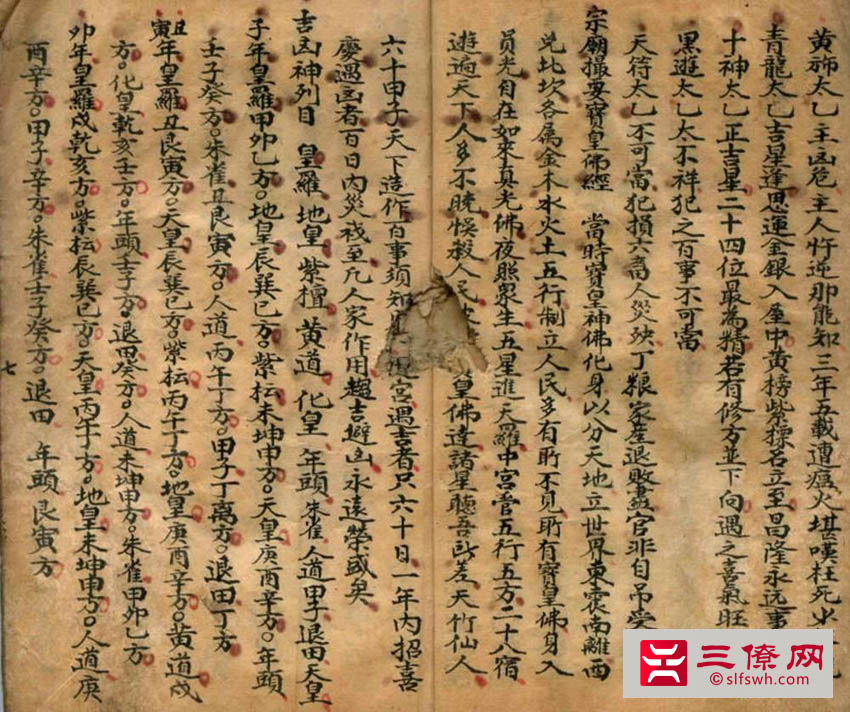 黄旛太乙主凶危主人忤逆那能知三年五載遭瘟火堪嘆枉死
青龍太乙吉星逢恩運金銀入屋中黄榜紫摽名立至昌隆永远事
十神太乙正吉星二十四位最為精若有修方並下向遇之喜氣旺
黑遊太乙太不祥犯之百事不可當
天符太乙不可當犯損六畜人災殃丁粮家産退敗盡官非自吊受
宗廟撮要寳皇佛經 當時寳皇神佛化身以分天地立世界東震南離西
兑北坎各属金木水火土五行制立人民多有所不見所有寳皇佛身入
員光自在如來真光佛夜照衆生五星進天羅中宫管五行五方二十八宿
遊遍天下人多不曉悮殺人民 皇佛達諸星聽吾 差天竹仙人
六十甲子天下造作百事須知 宫遇吉者只六十日一年内招喜
慶遇凶者百日内災 至凡人家作用趨吉避凶永遠榮盛矣
吉凶神列目 皇羅 地皇 紫檀 黄道 化皇 年頭 朱雀 人道甲子退田天皇
子年皇羅甲卯乙方。地皇辰巽巳方。紫枟未坤申方。天皇庚酉辛方。年頭
壬子癸方。朱雀丑艮寅方。人道丙午丁方。甲子丁离方。退田丁方
丑寅年皇羅丑艮寅方。天皇辰巽巳方。紫枟丙午丁方。地皇庚酉辛方。黄道戍
方。化皇乾亥壬方。年頭壬子方。退田癸方。人道未坤申方。朱雀甲卯乙方
卯年皇羅戍乾亥方。紫枟辰巽巳方。天皇丙午丁方。地皇未坤申方。人道庚
酉辛方。甲子辛方。朱雀壬子癸方。退田 年頭艮寅方
七
三僚网
©slfswh.com